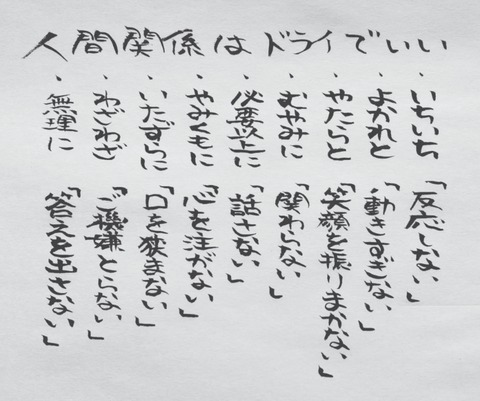 人間関係はドライでいい
・いちいち「反応しない」
・よかれと「動きすぎない」
・やたらと「笑顔を振りまかない」
・むやみに「関わらない」
・必要以上に「話さない」
・やみくもに「心を注がない」
・いたずらに「口を挟まない」
・わざわざ「ご機嫌とらない」
・無理に「答えを出さない」